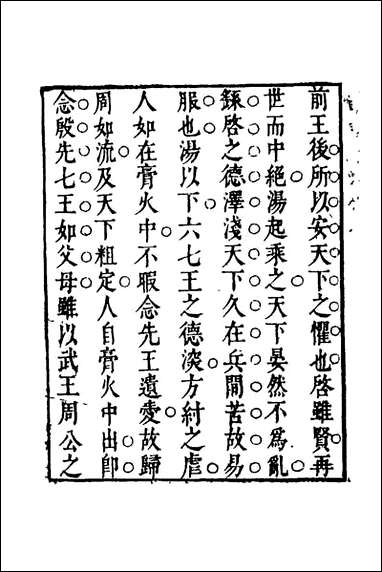 前王後所以安天下之懼也啓雖賢再
世而中絕湯起乘之天下晏然不爲亂
繇啓之德澤淺天下久在兵間苦故易
服也湯以下六七王之德深方紂之虐
人如在膏火中不暇念先王遺愛故歸
周如流及天下粗定人自膏火中出卽
念殷先七王如父母雖以武王周公之